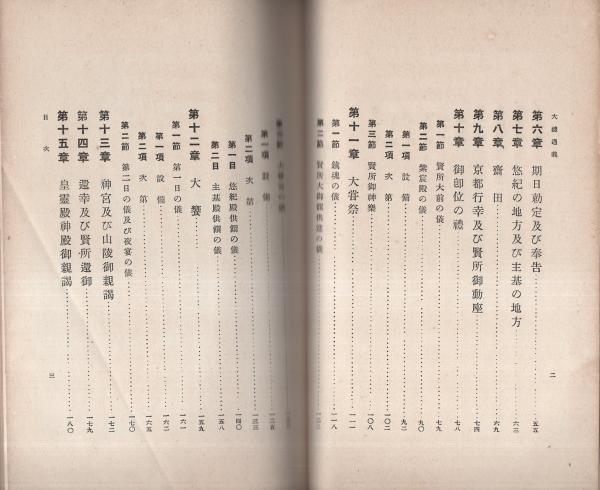 大禮通義
第六章 期日勅定及び奉告……五五
第七章 悠紀の地方及び主基の地方……六三
第八章 齋田……六九
第九章 京都行幸及び賢所御動座……七四
第十章 御卽位の禮……七八
第一節 賢所大前の儀……七九
第二節 紫宸殿の儀……九〇
第一項 設備……九二
第二項 次第……
第三節 賢所御神樂……一〇八
第十一章 大嘗祭……一一一
第一節 鎭魂の儀……一一八
第二節 賢所大御饌供進の儀……
二
第三節
第一項 設備……一二五
第二項 次第……一三三
第一日 悠紀殿供饌の儀……一四〇
第二日 主基殿供饌の儀……一五八
第十二章 大饗……一五九
第一節 第一日の儀……一六一
第一項 設備……一六二
第二項 次第……一六五
第二節 第二日の儀及び夜宴の儀……一七〇
第十三章 神宮及び山陵御親謁……一七二
第十四章 還幸及び賢所還御……一七九
第十五章 皇靈殿神殿御親謁……一八〇
目次
三